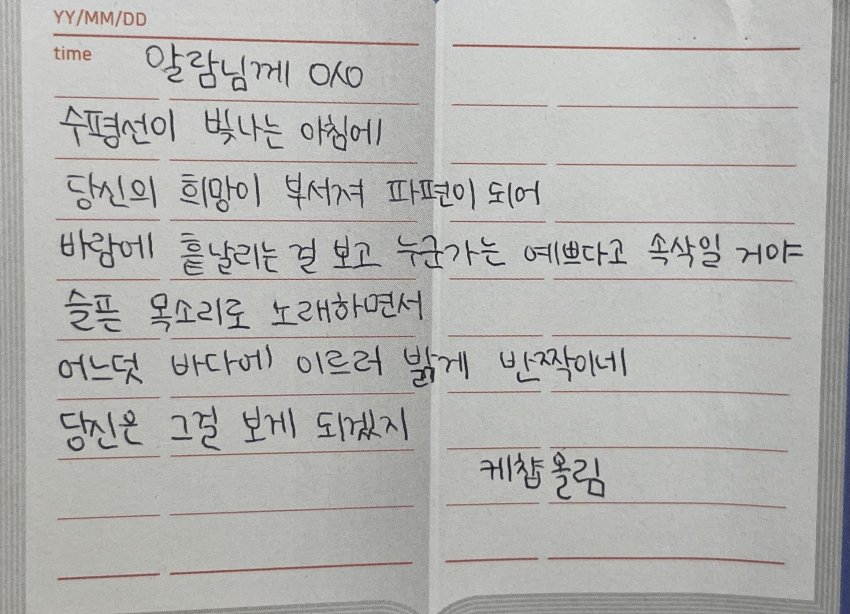 YY/MM/DD
time
알람님께 OㅅO
수평선이 빛나는 아침에
당신의 희망이 부서져 파편이 되어
바람에 흩날리는 걸 보고 누군가는 예쁘다고 속삭일 거야
슬픈 목소리로 노래하면서
어느덧 바다에 이르러 밝게 반짝이네
당신은 그걸 보게 되겠지
케챱 올림